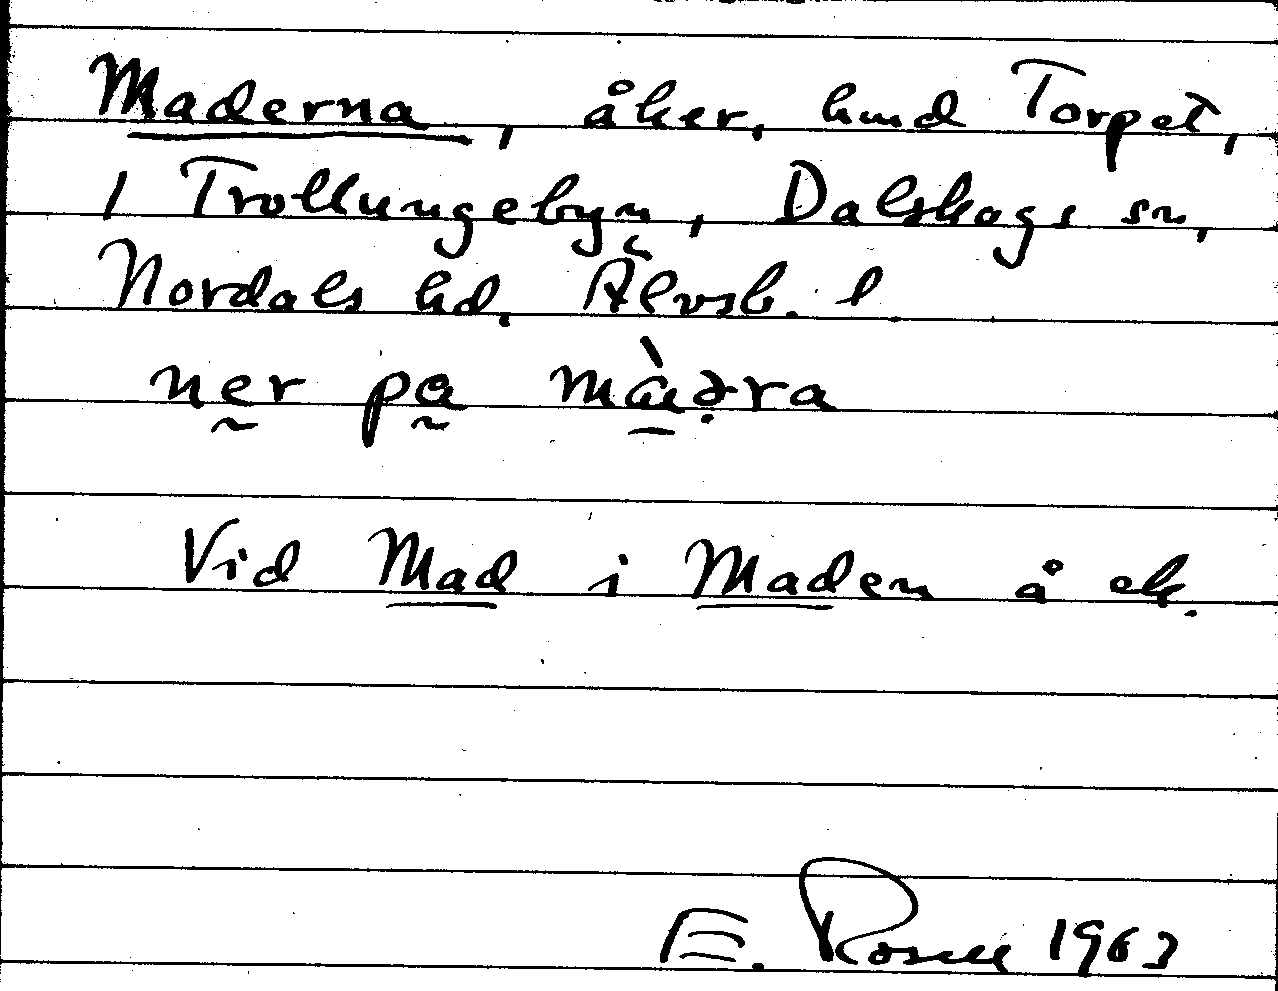 Maderna, åker, hmd Torpet,
i Trollungebyn, Dalskogs sn,
Nordals hd. Älvsb. l.
ner pa
Vid Mad i Maden å ek.
E. Rosell 1963